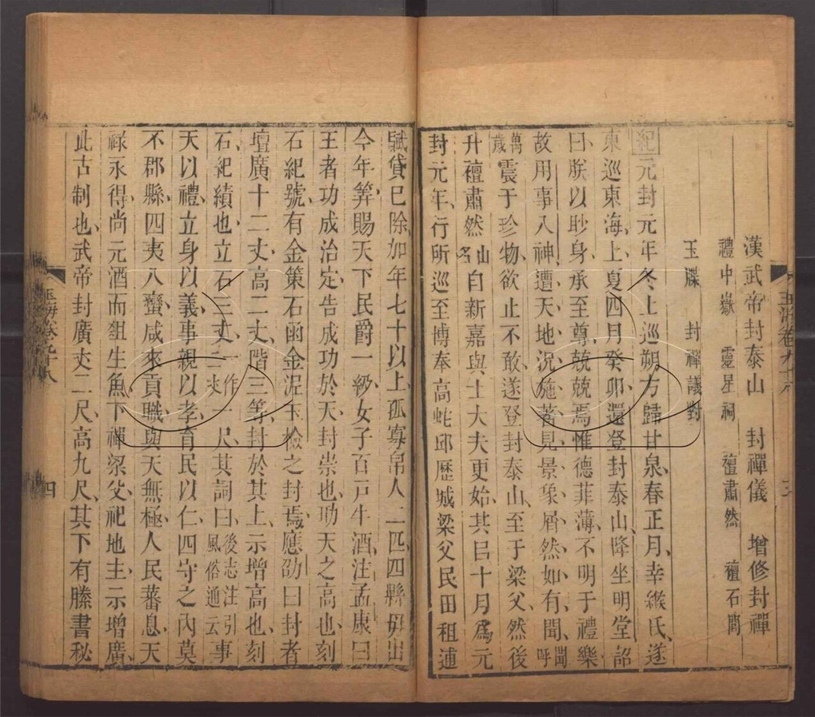 漢武帝封泰山　封禪儀　增修封禪
禮中嶽　靈星祠　禪肅然　禪石閭
玉牒　封禪議對
紀元封元年冬上巡朔方歸甘泉春正月幸緱氏遂
東巡東海上夏四月癸卯還登封泰山降坐明堂詔
曰朕以眇身承至尊兢兢焉惟德菲薄不明于禮樂
故用事八神遭天地況施著見景象屑然如有聞聞呼
萬歲震于珍物欲止不敢遂登封泰山至于梁父然後
升禪肅然山名自新嘉與士大夫更始其曰十月爲元
封元年行所巡至博奉高蛇邱歷城梁父民田租逋
賦貸已除加年七十以上孤寡帛人二匹四縣毋出
今年筭賜天下民爵一級女子百戸牛酒注孟康曰
王者功成治定告成功於天封崇也助天之高也刻
石紀號有金策石函金泥玉檢之封焉應劭曰封者
壇廣十二丈高二丈階三等封於其上示增高也刻
石紀績也立石三丈一作二丈一尺其詞曰後志注引風俗通云事
天以禮立身以義事親以孝育民以仁四守之內莫
不郡縣四夷八蠻咸來貢職與天無極人民蕃息天
祿永得尚元酒而俎生魚下禪梁父祀地主示增廣
此古制也武帝封廣丈二尺高九尺其下有牒書秘
玉海卷九十八
三
四